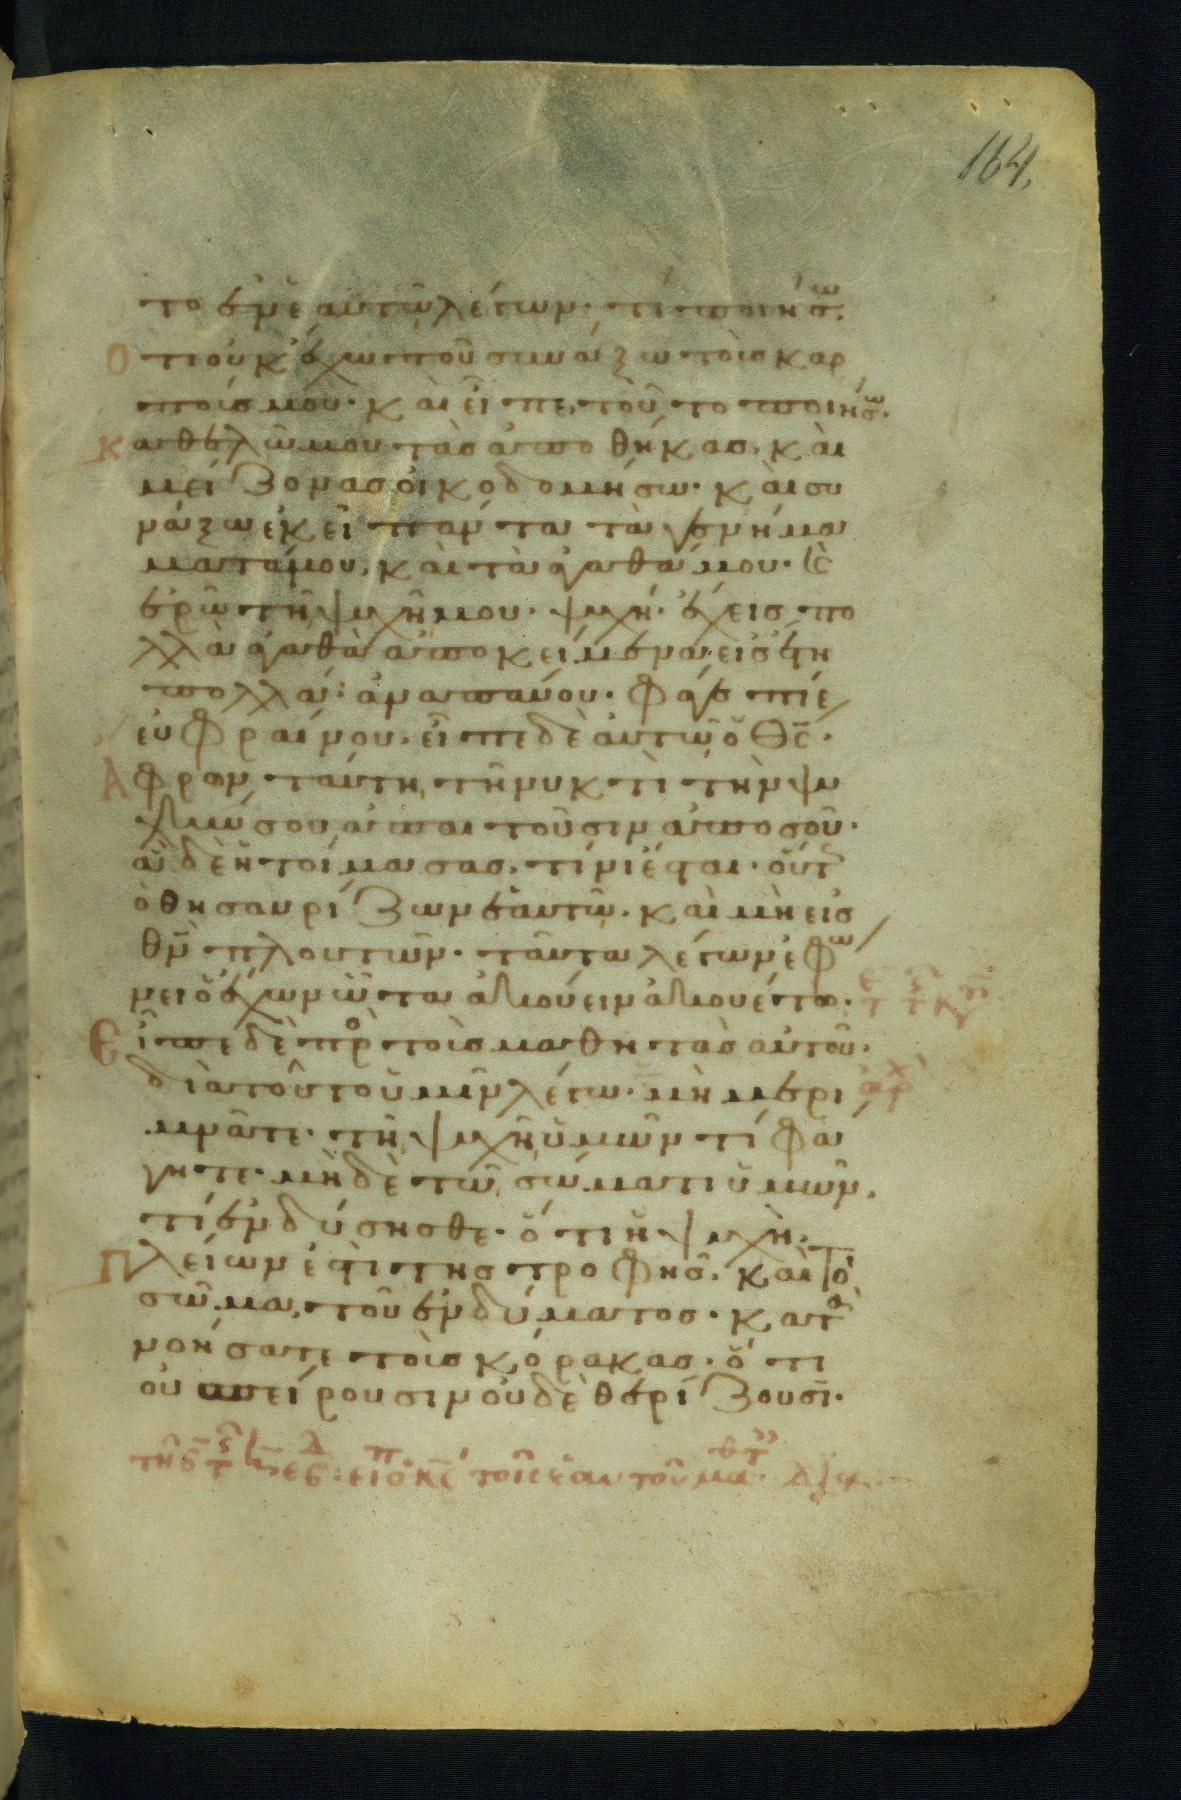 164,
το ἐν ἑαυτῶ λέγων· τί ποιήσω·
Ὅτι οὐκ ἔχω ποῦ συνάξω τοὺς καρ
πούς μου· καὶ εἶπε, τοῦτο ποιήσω·
Καθελῶ μου τὰς ἀποθήκας· καὶ
μείζονας οἰκοδομήσω· καὶ συ
νάξω ἐκεῖ πάντα τὰ γενήμα
ματά μου, καὶ τὰ ἀγαθά μου· κὲ
ἐρῶ τῆ ψυχῆ μου· ψυχή· ἔχεις πο
λλὰ ἀγαθὰ ἀποκείμενα· εἰς ἔτη
πολλά· ἀναπαύου· φάγε πίε
εὐφραίνου· εἶπε δὲ αὐτῶ ὁ θς·
Ἄφρων, ταύτη τῆ νυκτὶ τὴν ψυ
χήν σου ἀπαιτοῦσιν ἀπὸ σοῦ·
ἃ δὲ ἡτοίμασας, τίνι ἔσται· οὕτως
ὁ θησαυρίζων ἑαυτῶ· καὶ μὴ εἰς
θν πλουτῶν· ταῦτα λέγων ἐφώ
νει ὁ ἔχων ὦτα ἀκούειν ἀκουέτω·
Εἶπε δὲ πρὸς τοὺς μαθητὰς αὐτοῦ·
διὰ τοῦτο ὑμῖν λέγω· μὴ μερι
μνᾶτε· τῆ ψυχῆ ὑμῶν τί φά
γητε· μὴδὲ τῶ σώματι ὑμῶν,
τί ἐνδύσησθε· ὅτι ἡ ψυχὴ
Πλείων ἐστὶ τῆς τροφῆς· καὶ τὸ
σῶμα, τοῦ ἐνδύματος· κατα
νοήσατε τοὺς κόρακας· ὅτι
οὐ σπείρουσιν οὐδὲ θερίζουσι·